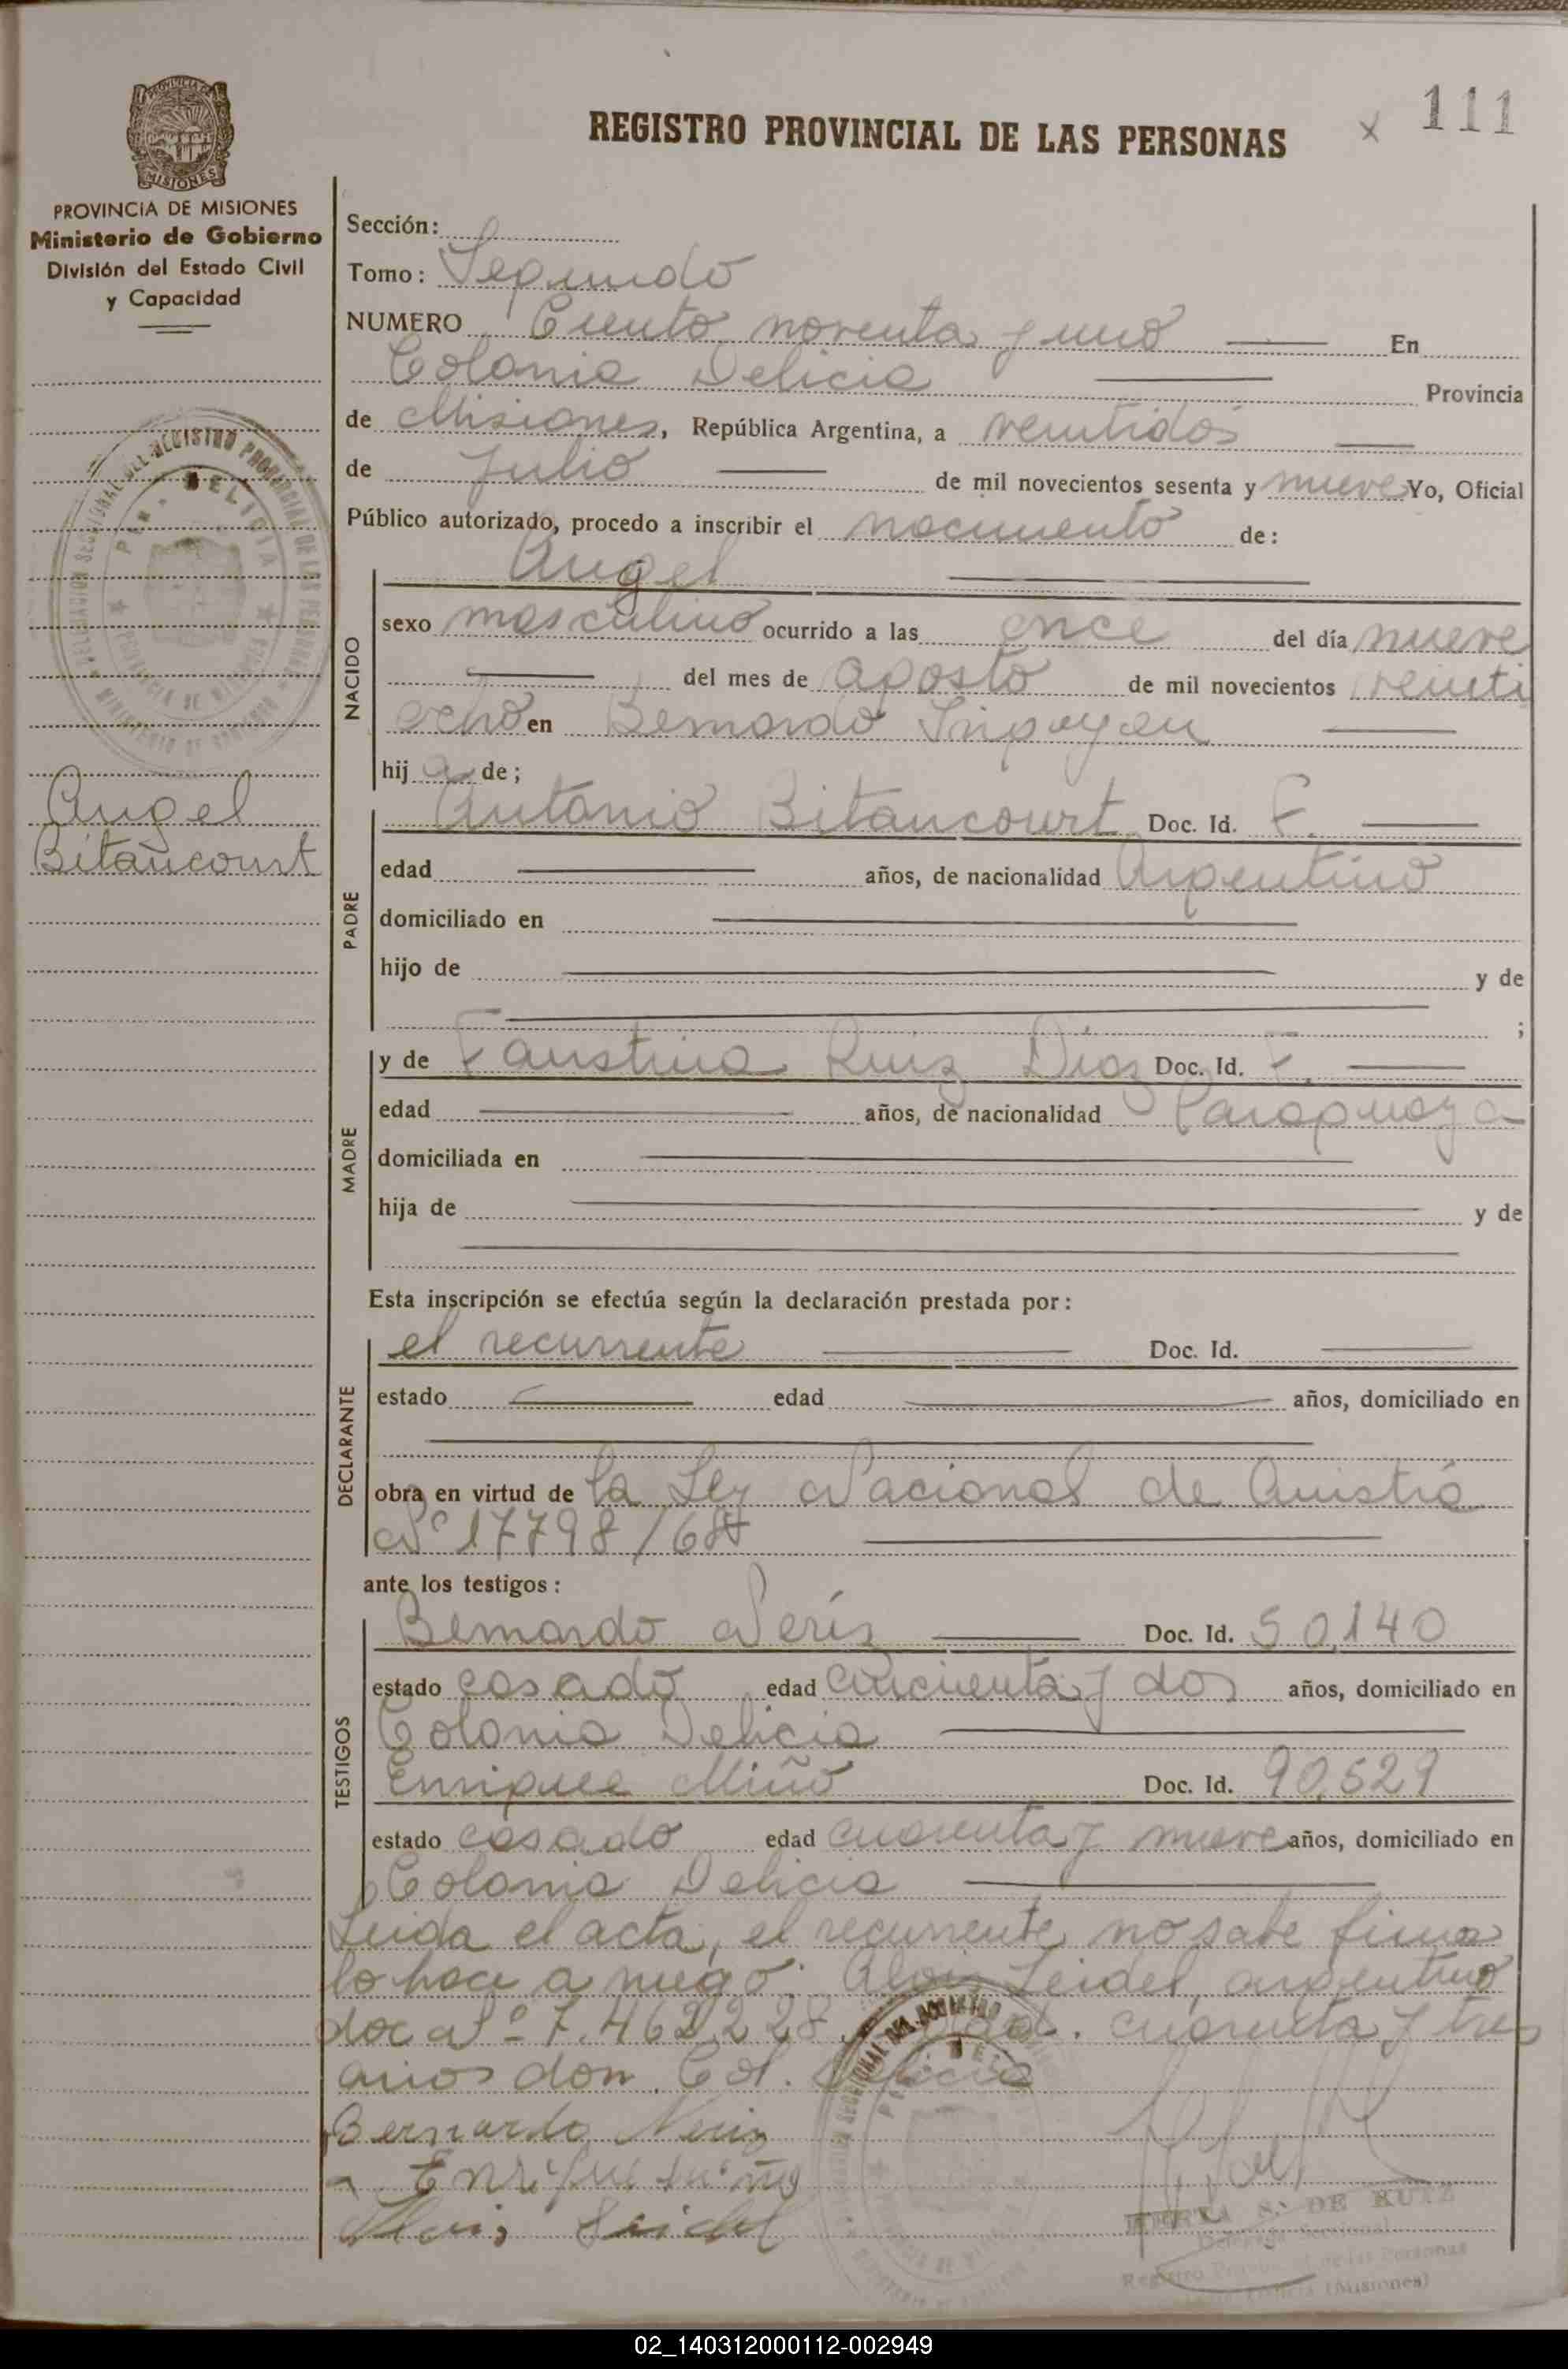 REGISTRO PROVINCIAL DE LAS PERSONAS
x 111
MISIONES
PROVINCIA DE MISIONES
Ministerio de Gobierno
División del Estado Civil
y Capacidad
Sección:
Tomo: Segundo
NUMERO Ciento noventa y uno En
Colonia Delicia Provincia
de Misiones, República Argentina, a veintidós
de Julio de mil novecientos sesenta y nueve Yo, Oficial
Público autorizado, procedo a inscribir el nacimiento de:
NACIDO
Angel
sexo masculino ocurrido a las once del día nueve
del mes de agosto de mil novecientos veinti
ocho en Bernardo Irigoyen
hij o de;
Angel
Bitancourt
PADRE
Antonio Bitancourt Doc. Id. F.
edad años, de nacionalidad Argentino
domiciliado en
hijo de y de
;
MADRE
y de Faustina Ruiz Diaz Doc. Id. F.
edad años, de nacionalidad Paraguaya
domiciliada en
hija de y de
Esta inscripción se efectúa según la declaración prestada por:
DECLARANTE
el recurrente Doc. Id.
estado edad años, domiciliado en
obra en virtud de la Ley Nacional de Anistía
Nº 17798/68
ante los testigos:
TESTIGOS
Bernardo Neris Doc. Id. 50.140
estado casado edad cincuenta y dos años, domiciliado en
Colonia Delicia
Enrique Miño Doc. Id. 90.529
estado casado edad cuarenta y nueve años, domiciliado en
Colonia Delicia
Leida el acta, el recurrente no sabe firma
lo hace a ruego: Alois Seidel, argentino
doc Nº 7.462.228 cuarenta y tres
años dom. Col. Delicia
Bernardo Neris
Enrique Miño
Alois Seidel
BERTA S. DE RUIZ
Delegada Seccional
Registro Provincial de las Personas
(Misiones)
02_140312000112-002949